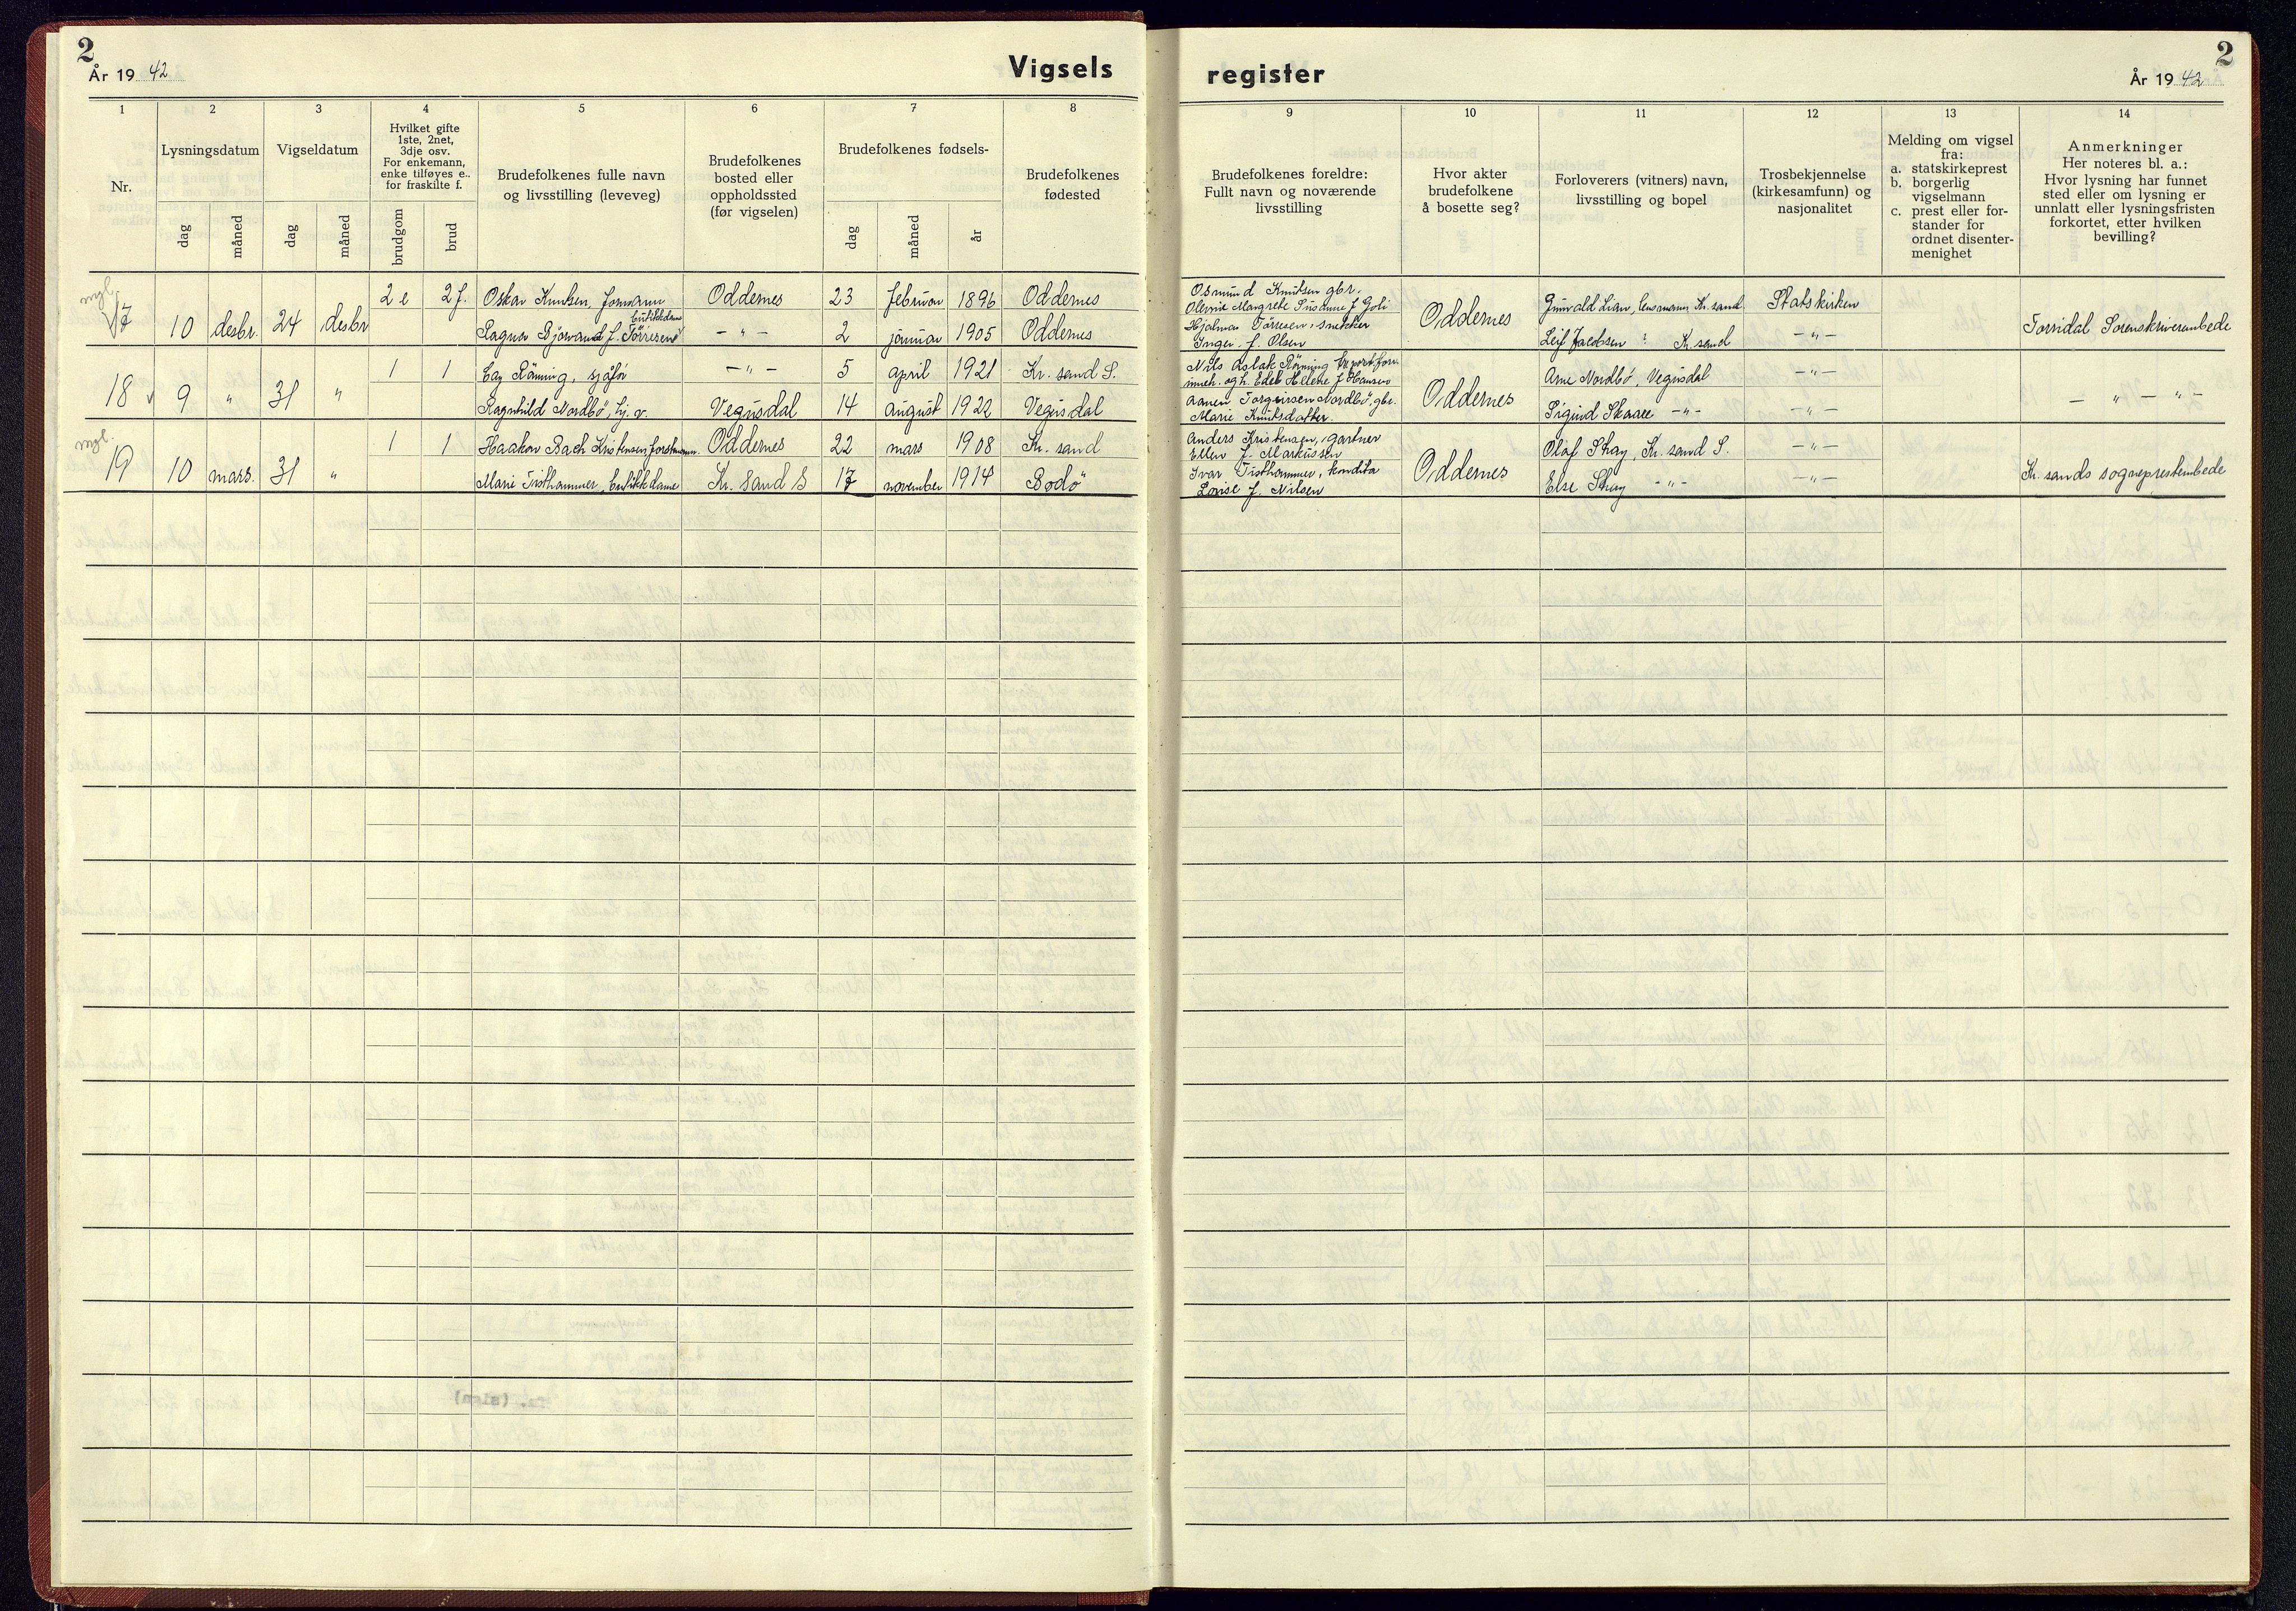 2
År 19 42
Vigsels
register
År 19 42
2
1 2 3 4 5 6 7 8
9 10 11 12 13 14
Nr.
Lysningsdatum
dag måned
Vigseldatum
dag måned
Hvilket gifte
1ste, 2net,
3dje osv.
For enkemann,
enke tilføyes e..
for fraskilte f.
brudgom brud
Brudefolkenes fulle navn
og livsstilling (leveveg)
Brudefolkenes
bosted eller
oppholdssted
(før vigselen)
Brudefolkenes fødsels-
dag måned år
Brudefolkenes
fødested
Brudefolkenes foreldre:
Fullt navn og noværende
livsstilling
Hvor akter
brudefolkene
å bosette seg?
Forloverers (vitners) navn,
livsstilling og bopel
Trosbekjennelse
(kirkesamfunn) og
nasjonalitet
Melding om vigsel
fra:
a. statskirkeprest
b. borgerlig
vigselmann
c. prest eller for-
stander for
ordnet disenter-
menighet
Anmerkninger
Her noteres bl. a.:
Hvor lysning har funnet
sted eller om lysning er
unnlatt eller lysningsfristen
forkortet, etter hvilken
bevilling?
17 10 desbr. 24 desbr
2 e 2 f. Oskar Knutsen, formann Oddernes 23 februar 1896 Oddernes
butikkdame
Ragna Bjørvand f. Tørresen — " — 2 januar 1905 Oddernes
Osmund Knutsen gbr.
Olevine Margrete Susanne f.
Hjalmar Tørresen, snekker
Inger f. Olsen
Oddernes
Gunvald Lian, lensmann, Kr. sand
Leif Jacobsen ? Kr. sand
Statskirken
— " —
Torridal Sorenskriverembede
18 v 9 " 31 "
1 1 Cay Rönning, sjåför — " — 5 april 1921 Kr. sand S.
Ragnhild Nordbö, hj. v. Vegusdal 14 august 1922 Vegusdal
Nils Aslak Rönning
inneh. og h. Edel Helene f. Hansen
Aanen Torgeirsen Nordbö, gbr.
Marie Knutsdatter
Oddernes
Arne Nordbö, Vegusdal
Sigurd Skaaee — " —
— " —
— " —
— " — " —
mgl.
19 10 mars. 31 "
1 1 Haakon Bach Kristensen, Oddernes 22 mars 1908 Kr. sand
Marie Tisthammer, butikkdame Kr. Sand S 17 november 1914 Bodö
Anders Kristensen, gartner
Ellen f. Markussen
Ivar Tisthammer, kondita
Lovise f. Nilsen
Oddernes
Olaf Skay, Kr. sand S.
Else Skay — " —
— " —
— " —
Kr. sands sogneprestembede